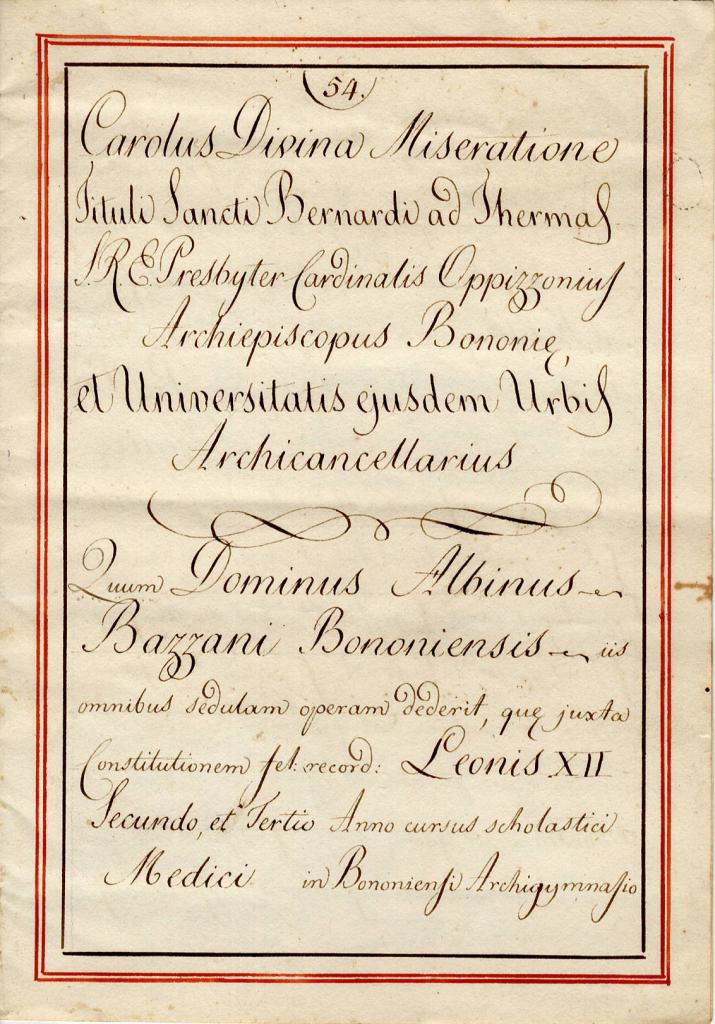 54.
Carolus Divina Miseratione
Tituli Sancti Bernardi ad Thermas
S.R.E. Presbyter Cardinalis Oppizzonius
Archiepiscopus Bononię
et Universitatis ejusdem Urbis
Archicancellarius
Quum Dominus Albinus
Bazzani Bononiensis iis
omnibus sedulam operam dederit, quę juxta
Constitutionem fel: record: Leonis XII
Secundo, et Tertio Anno cursus scholastici
Medici in Bononiensi Archigymnasio